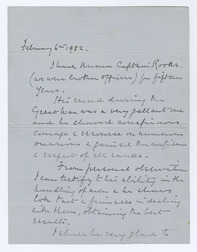 February 6th 1922.
I have known Captain Rooke
(we were brother officers) for fifteen
years.
His record during the
Great War was a very gallant one
and he showed conspicuous
courage & resource on numerous
occasions & gained the confidence
& respect of all ranks.
From personal observation
I can testify to his ability in the
handling of men & he shows
both tact & firmness in dealing
with them, obtaining the best
results.
I shall be very glad to